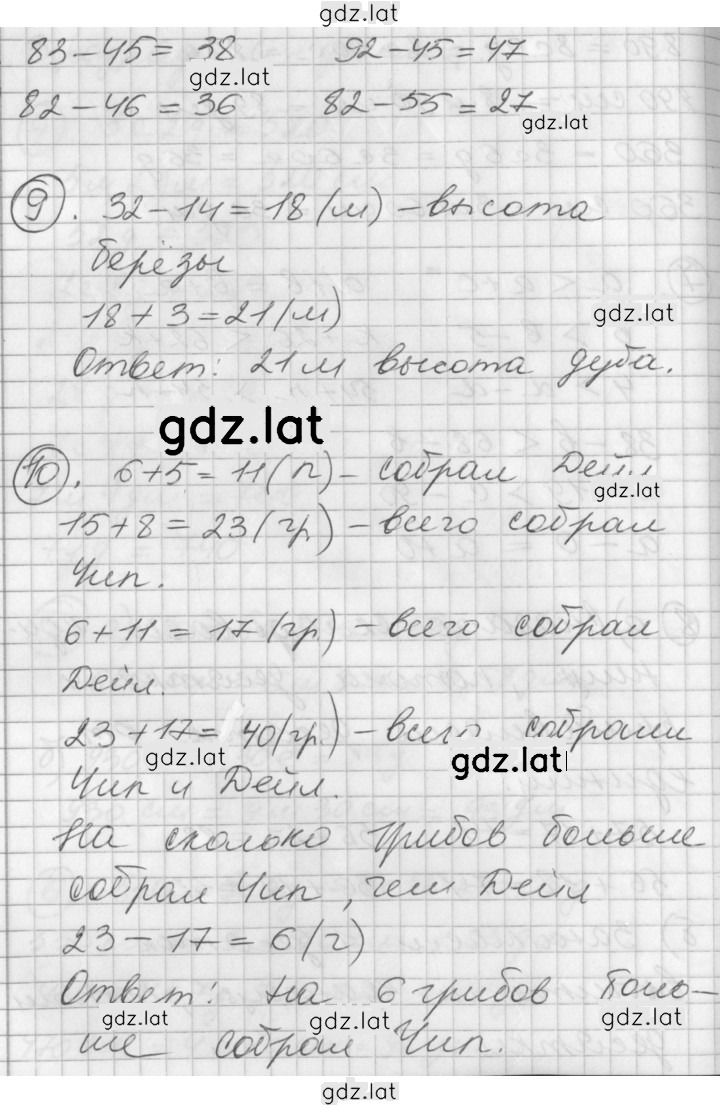 gdz.lat
83-45= 38 92-45=47
gdz.lat
82-46=36 82-55=27
gdz.lat
9. 32-14=18(м) -высота
берёзы
18+3=21(м)
gdz.lat
Ответ: 21м высота дуба.
gdz.lat
10. 6+5=11(п)- собрал Дейл
gdz.lat
15+8=23(гр) -всего собрал
Чип.
6+11=17(гр) -всего собрал
Дейл.
23+17= 40(гр.) -всего собрали
gdz.lat gdz.lat
Чип и Дейл.
На сколько грибов больше
собрал Чип, чем Дейл
23-17=6(г)
Ответ: на 6 грибов боль-
gdz.lat gdz.lat gdz.lat
ше собрал Чип.
gdz.lat